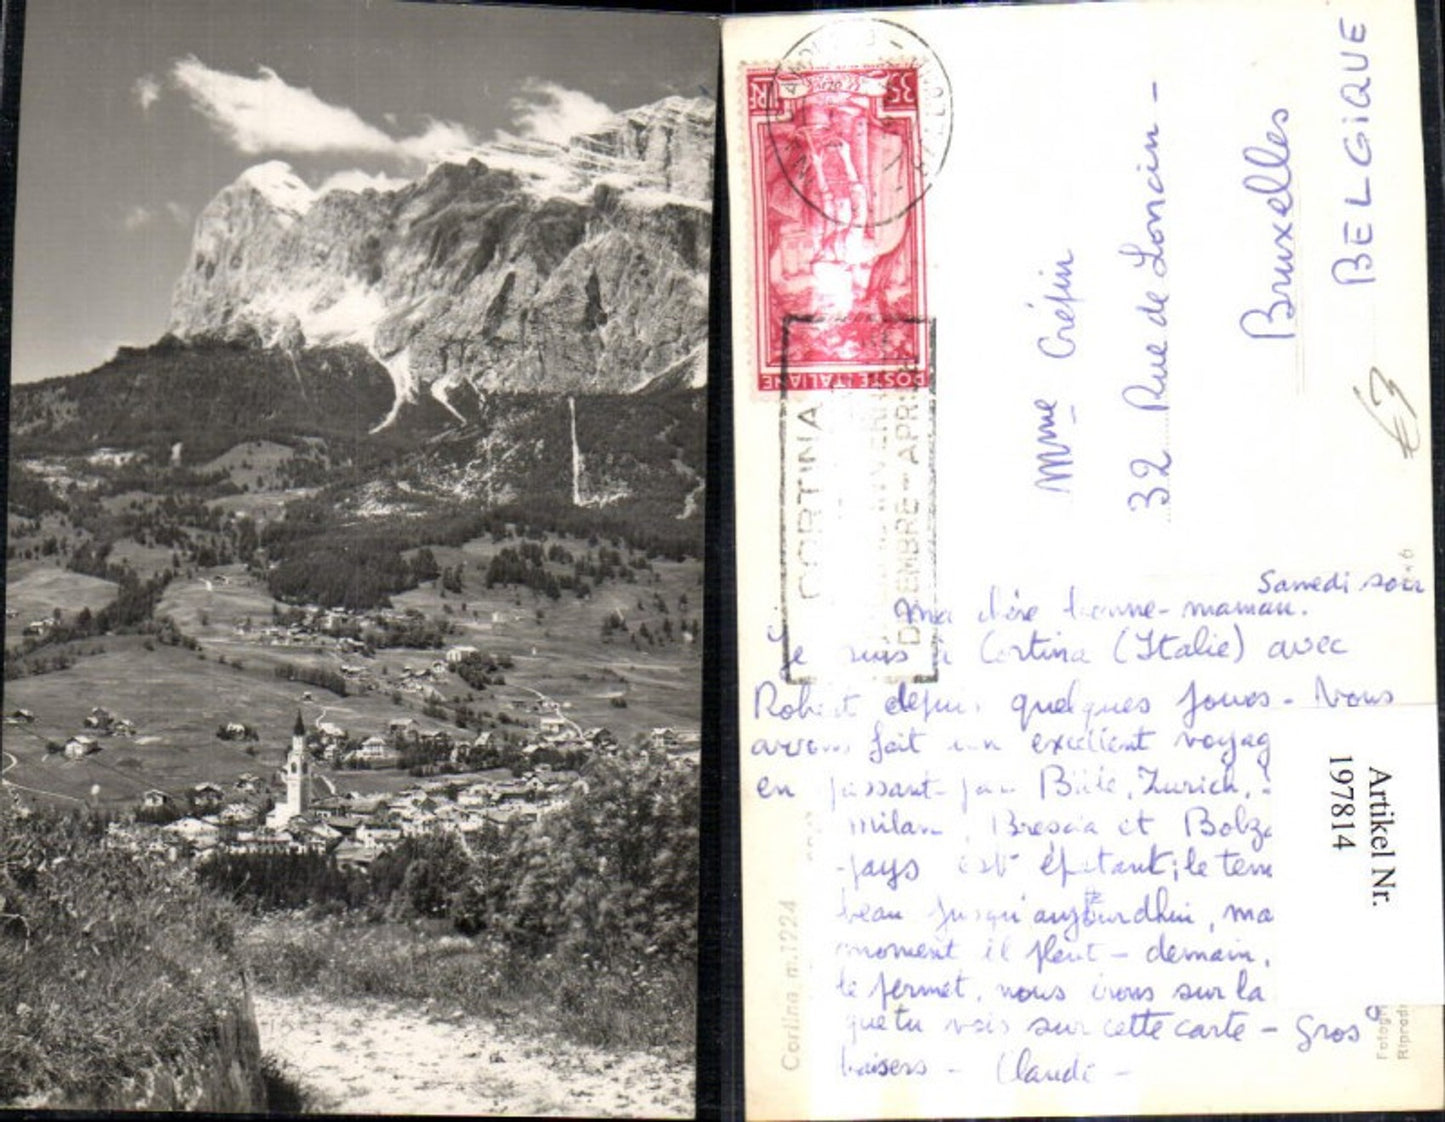 35
POSTE ITALIANE
CORTINA
DICEMBRE - APRILE
Mme Crépin
32 Rue de Loncin -
Bruxelles
BELGIQUE
€3
Samedi soir
Ma chère bonne-maman.
Je suis à Cortina (Italie) avec
Robert depuis quelques jours - Nous
avons fait un excellent voyag
en passant par Bâle, Zurich,
Milan, Brescia et Bolza
pays est épatant; le tem
beau jusqu'aujourdhui, ma
moment il pleut - demain,
le permet, nous irons sur la
que tu vois sur cette carte - Gros
baisers - Claude -
Cortina m.1224
Fotogr
Riprodu
Artikel Nr.
197814